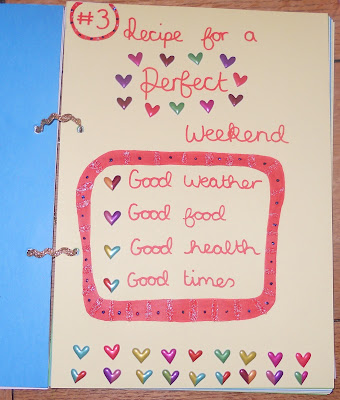 #3 Recipe for a
Perfect
Weekend
Good weather
Good food
Good health
Good times